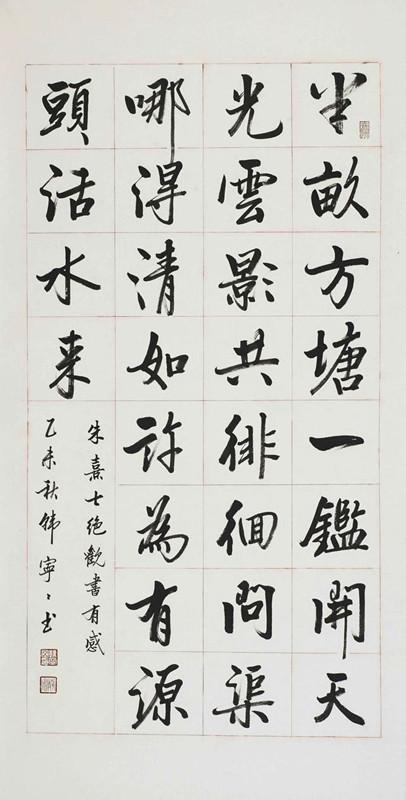 半畝方塘一鑑開天
光雲影共徘徊問渠
哪得清如許為有源
頭活水来
朱熹七绝觀書有感
乙未秋韩寧寧书